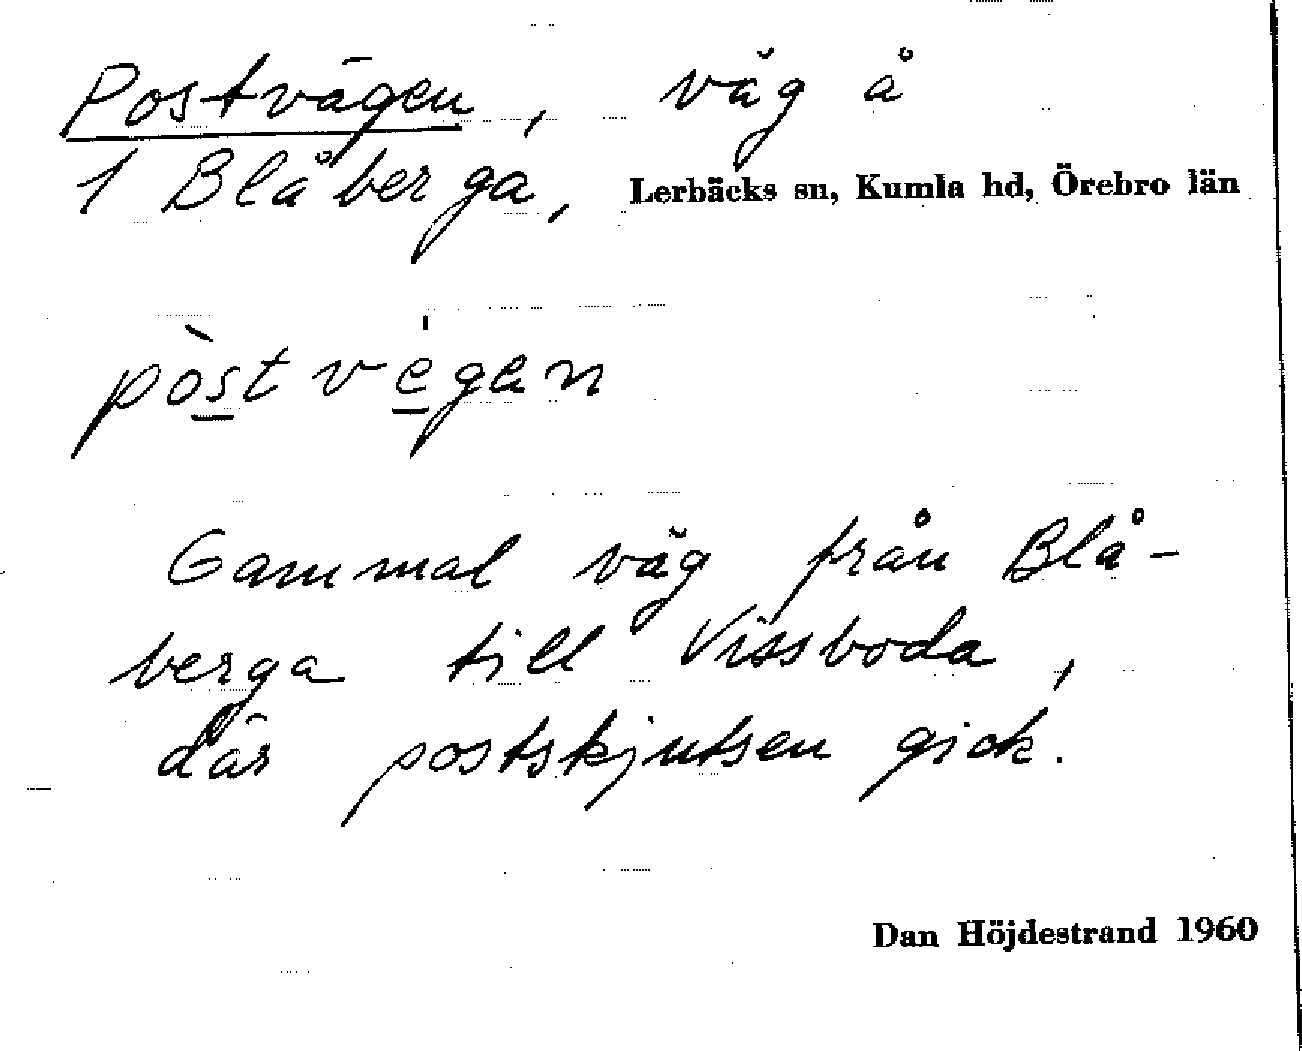 Postvägen, väg å
1 Blåberga, Lerbäcks sn, Kumla hd, Örebro län
pòstvégen
Gammal väg från Blå-
berga till Vissboda,
där postskjutsen gick.
Dan Höjdestrand 1960